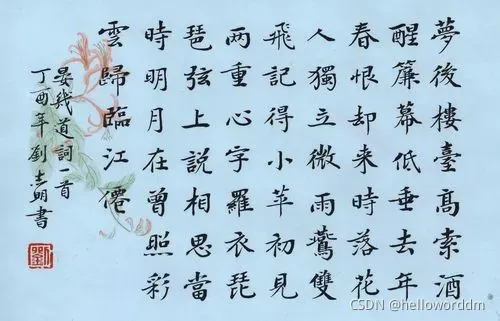 夢後樓臺高索酒
醒簾幕低垂去年
春恨却来時落花
人獨立微雨鷰雙
飛記得小苹初見
两重心字羅衣琵
琶弦上説相思當
時明月在曾照彩
雲歸臨江僊
晏幾道詞一首
丁酉年劉志明書
劉
CSDN @helloworddm